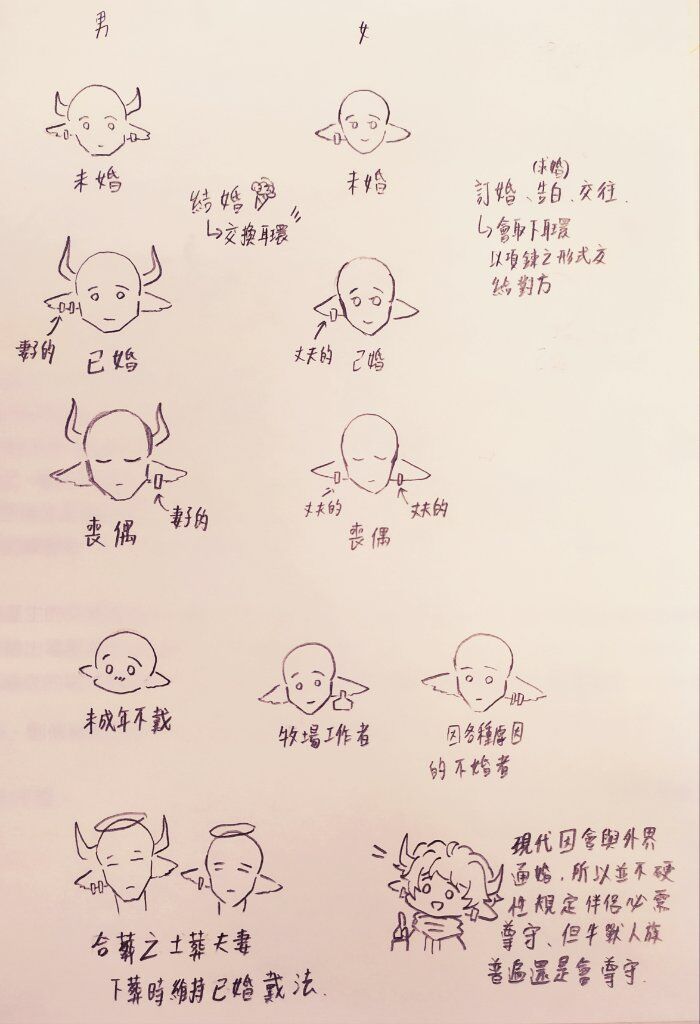 男
女
未婚
未婚
結婚
↳交換耳環
(求婚)
訂婚、告白、交往.
↳會取下耳環
以項鍊之形式交
給對方
妻子的
已婚
丈夫的
已婚
妻子的
喪偶
丈夫的
丈夫的
喪偶
未成年不戴
牧場工作者
因各種原因
的不婚者
合葬之土葬夫妻
下葬時維持已婚戴法.
現代因會與外界
通婚,所以並不硬
性規定伴侶必需
尊守、但牛獸人族
普遍還是會尊守.